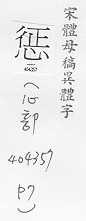 宋體母稿異體字
(心部
404357
P7)